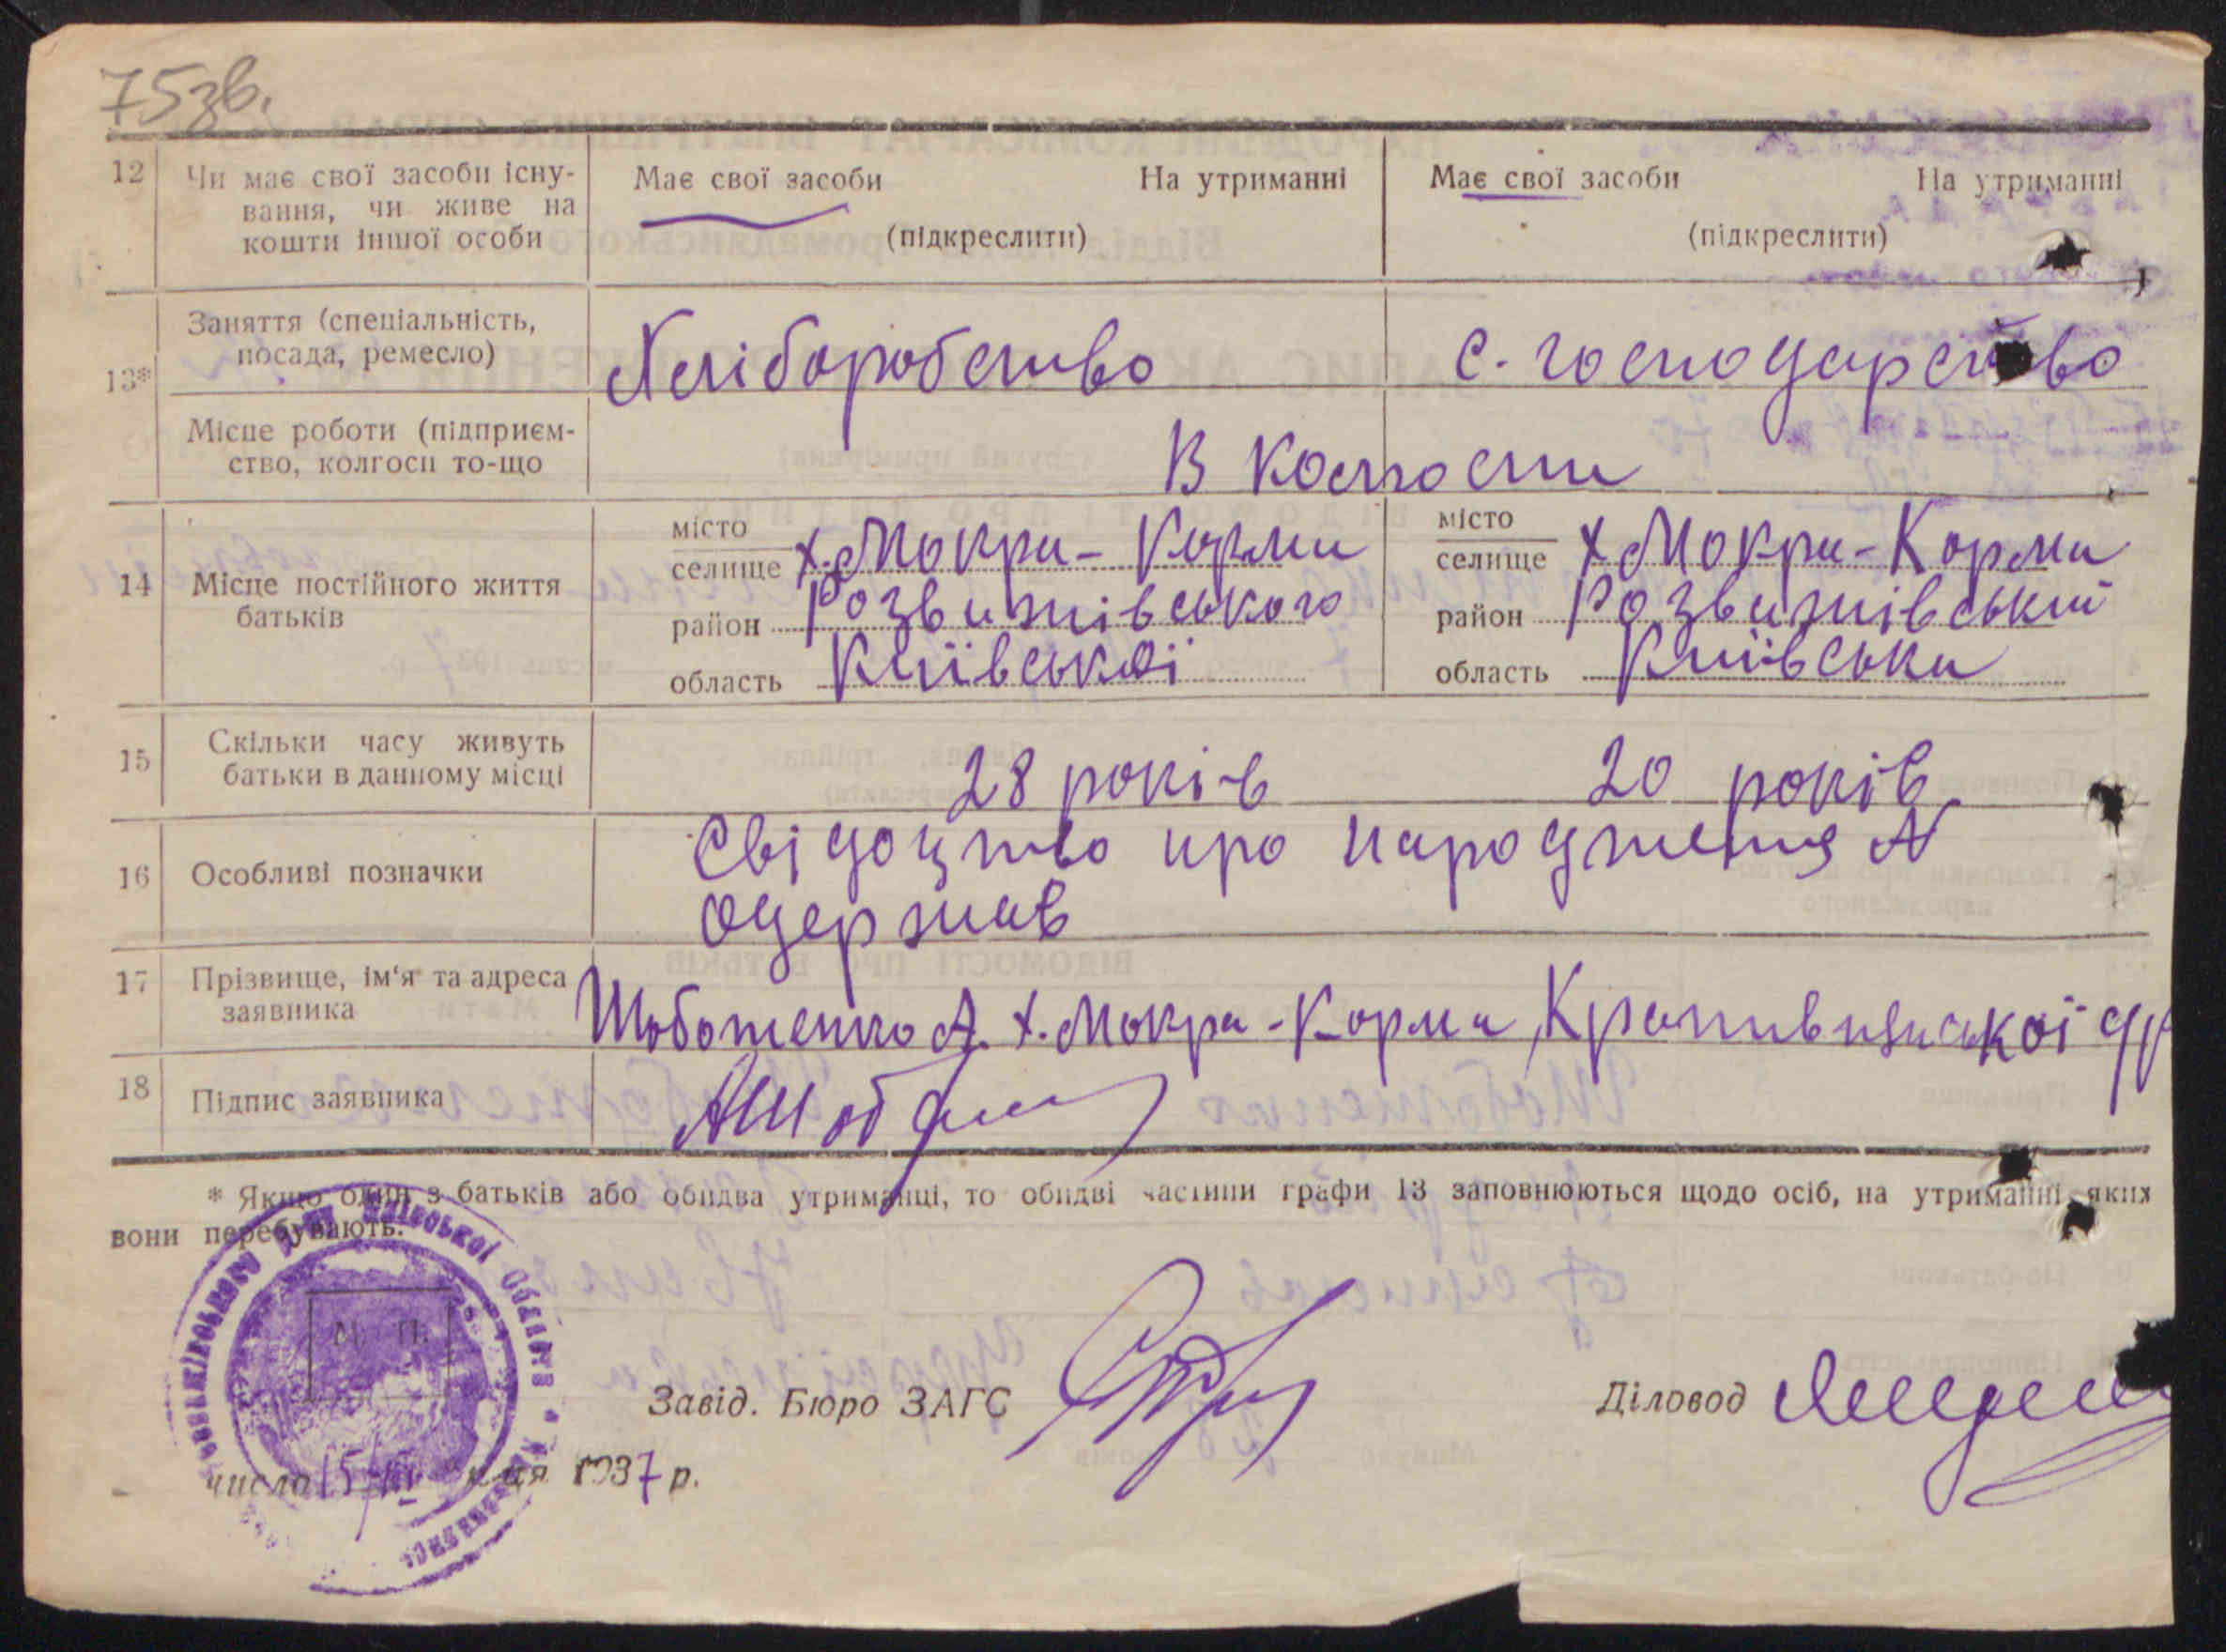 75зв.
12 Чи має свої засоби існу-
вання, чи живе на
кошти іншої особи
Має свої засоби На утриманні
(підкреслити)
Має свої засоби На утриманні
(підкреслити)
13*
Заняття (спеціальність,
посада, ремесло)
Хліборобство
С. господарство
Місце роботи (підприєм-
ство, колгосп то-що
В колгоспи
14 Місце постійного життя
батьків
місто
селище х. Мокра-Корма
район Розважівського
область Київської
місто
селище х Мокра-Корма
район Розважівський
область Київська
15 Скільки часу живуть
батьки в данному місці
28 років
20 років
16 Особливі позначки
Свідоцтво про народження №
одержав
17 Прізвище, ім‘я та адреса
заявника
Шоботенко А. х. Мокра-Корма, Кропивнянської
18 Підпис заявника
* Якщо один з батьків або обидва утриманці, то обидві частини графи 13 заповнюються щодо осіб, на утриманні яких
вони перебувають.
Київської Області
М. П.
Завід. Бюро ЗАГС
Діловод
числа 15/ 1937 р.